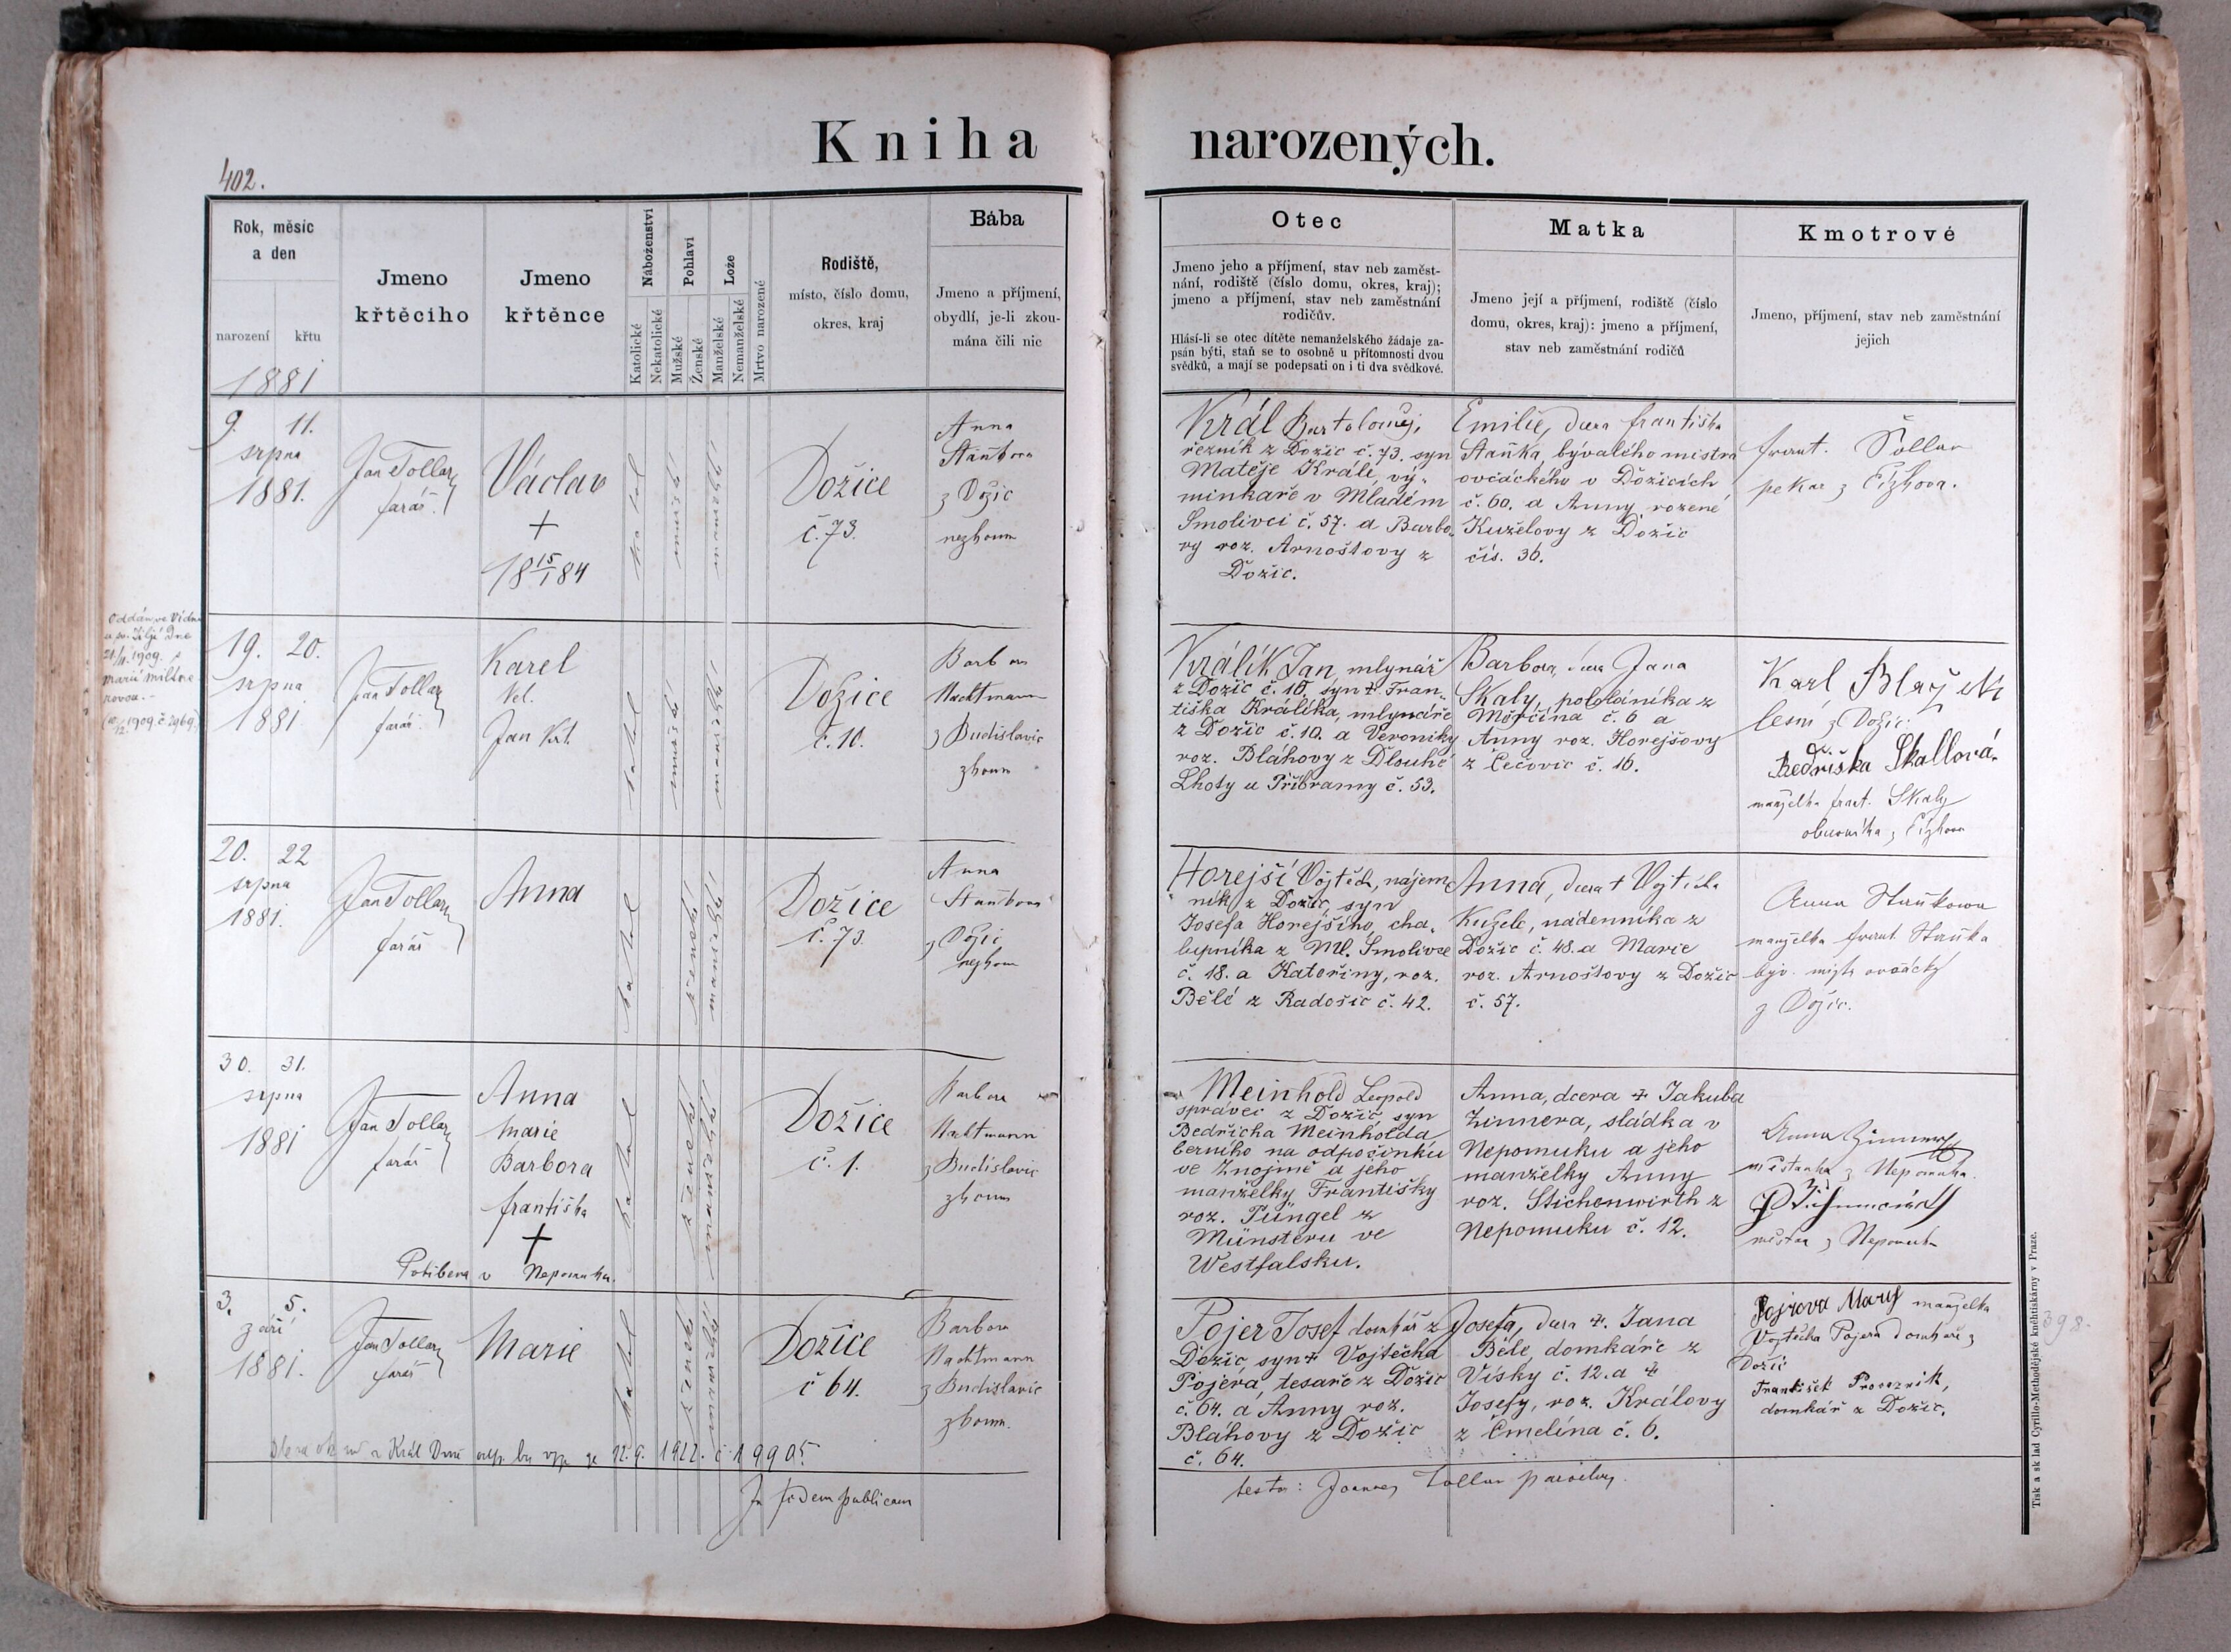 Kniha narozených.
402.
Rok, měsíc
a den
narození křtu
1881
Jmeno
křtěcího
Jmeno
křtěnce
Náboženství
Katolické
Nekatolické
Pohlaví
Mužské
Ženské
Lože
Manželské
Nemanželské
Mrtvo narozené
Rodiště,
místo, číslo domu,
okres, kraj
Bába
Jmeno a příjmení,
obydlí, je-li zkou-
mána čili nic
Otec
Jmeno jeho a příjmení, stav neb zaměst-
nání, rodiště (číslo domu, okres, kraj);
jmeno a příjmení, stav neb zaměstnání
rodičův.
Hlásí-li se otec dítěte nemanželského žádaje za-
psán býti, staň se to osobně u přítomnosti dvou
svědků, a mají se podepsati on i ti dva svědkové.
Matka
Jmeno její a příjmení, rodiště (číslo
domu, okres, kraj): jmeno a příjmení,
stav neb zaměstnání rodičů
Kmotrové
Jmeno, příjmení, stav neb zaměstnání
jejich
9. 11.
srpna
1881.
Jan Tollar
farář
Václav
+
18 15/1 84
katol
mužské
manželské
Dožice
č. 73.
Anna
Staňkova
z Dožic
nezkoum
Král Bartoloměj,
řezník z Dožic č. 73. syn
Matěje Krále, vý-
minkáře v Mladém
Smolivci č. 57. a Barbo-
ry roz. Arnoštovy z
Dožic.
Emilie, dcera Františka
Staňka, bývalého mistra
ovčáckého v Dožicích
č. 60. a Anny, rozené
Kuželovy z Dožic
čís. 36.
frant.
pekař z
Oddán ve Vídni
u sv. Jiljí dne
21/11. 1909. s
Marií
1909. č. 2969
19. 20.
srpna
1881
Jan Tollar
farář
Karel
vel.
Jan Kt.
katol
mužské
manželské
Dožice
č. 10.
Barbora
Nachtmann
z Budislavic
zkoum
Králík Jan, mlynář
z Dožic č. 10. syn † Fran-
tiška Králíka, mlynáře
z Dožic č. 10. a Veroniky
roz. Bláhovy z Dlouhé
Lhoty u Příbramy č. 53.
Barbora, dcera Jana
Skaly, pololáníka z
Měrčína č. 6 a
Anny roz. Horejšovy
z Čečovic č. 16.
Karl Blažek
lesní z Dožic.
Bedřiška Skallová.
manželka frant. Skaly
20. 22
srpna
1881.
Jan Tollar
farář
Anna
katol
ženské
manželské
Dožice
č. 73.
Anna
Staňkova
z Dožic
nezkoum
Horejší Vojtěch, nájem-
ník z Dožic, syn
Josefa Horejšího, cha-
lupníka z Ml. Smolivce
č. 18. a Kateřiny, roz.
Bělé z Radošic č. 42.
Anna, dcera † Vojtěcha
Kužele, nádenníka z
Dožic č. 48. a Marie
roz. Arnoštovy z Dožic
č. 57.
Anna Staňkowa
manželka frant. Staňka
býv. mistr ovčácký
z Dožic.
30. 31.
srpna
1881
Jan Tollar
farář
Anna
Marie
Barbora
františka
+
v Nepomuku.
katol
ženské
manželské
Dožice
č. 1.
Barbora
Nachtmann
z Budislavic
zkoum
Meinhold Leopold
správec z Dožic, syn
Bedřicha Meinholda,
berního na odpočinku
ve Znojmě a jeho
manželky Františky
roz. Püngel z
Münsteru ve
Westfalsku.
Anna, dcera † Jakuba
Zinnera, sládka v
Nepomuku a jeho
manželky Anny
roz. Stichenwirth z
Nepomuku č. 12.
Anna
měšťanka z Nepomuka.
měšťan z Nepomuka
3. 5.
září
1881.
Jan Tollar
farář
Marie
katol
ženské
manželské
Dožice
č 64.
Barbora
Nachtmann
z Budislavic
zkoum.
Pojer Josef domkář z
Dožic, syn † Vojtěcha
Pojera, tesaře z Dožic
č. 64. a Anny roz.
Bláhovy z Dožic
č. 64.
Josefa, dcera †. Jana
Běle, domkáře z
Vísky č. 12. a †
Josefy, roz. Královy
z Čmelína č. 6.
Pojrova Mary manželka
Vojtěcha Pojera domkáře z
Dožic
František
domkář z Dožic.
12. 9. 1922. č 19905
In fidem publicam
testor: Joannes Tollar parochus.
398.
Tisk a sklad Cyrillo-Methodějské knihtiskárny v Praze.